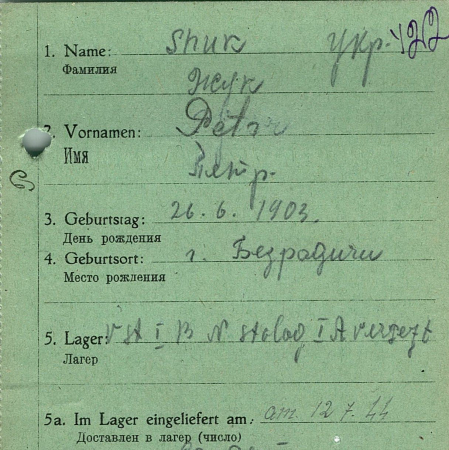 1. Name: Shuk Укр. 422
Фамилия
Жук
2. Vornamen: Petr
Имя
Петр.
3. Geburtstag: 26. 6. 1903.
День рождения
4. Geburtsort: г. Безрадичи
Место рождения
5. Lager: V St I B N Stalag I A versezt
Лагер
5a. Im Lager eingeliefert am: am. 12 7. 44
Доставлен в лагер (число)